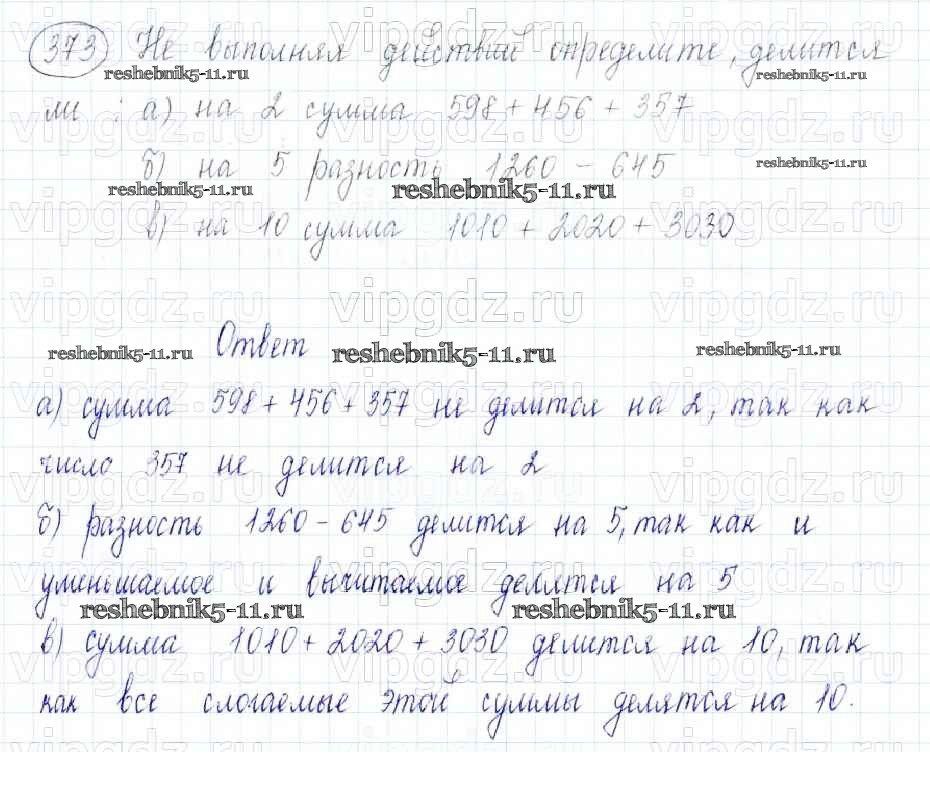 373 Не выполняя действий определите, делится
ли : а) на 2 сумма 598 + 456 + 357
б) на 5 разность 1260 - 645
в) на 10 сумма 1010 + 2020 + 3030
Ответ
а) сумма 598 + 456 + 357 не делится на 2, так как
число 357 не делится на 2
б) разность 1260 - 645 делится на 5, так как и
уменьшаемое и вычитаемое делятся на 5
в) сумма 1010 + 2020 + 3030 делится на 10, так
как все слогаемые этой суммы делятся на 10.
reshebnik5-11.ru
vipgdz.ru